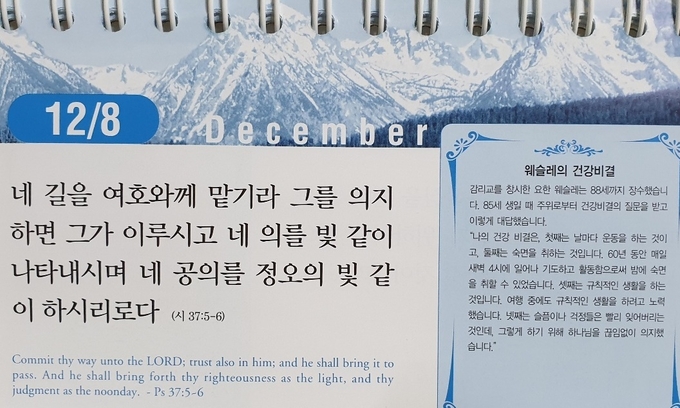 12/8
December
네 길을 여호와께 맡기라 그를 의지
하면 그가 이루시고 네 의를 빛 같이
나타내시며 네 공의를 정오의 빛 같
이 하시리로다 (시 37:5-6)
Commit thy way unto the LORD; trust also in him; and he shall bring it to
pass. And he shall bring forth thy righteousness as the light, and thy
judgment as the noonday. - Ps 37:5-6
웨슬레의 건강비결
감리교를 창시한 요한 웨슬레는 88세까지 장수했습니
다. 85세 생일 때 주위로부터 건강비결의 질문을 받고
이렇게 대답했습니다.
"나의 건강 비결은, 첫째는 날마다 운동을 하는 것이
고, 둘째는 숙면을 취하는 것입니다. 60년 동안 매일
새벽 4시에 일어나 기도하고 활동함으로써 밤에 숙면
을 취할 수 있었습니다. 셋째는 규칙적인 생활을 하는
것입니다. 여행 중에도 규칙적인 생활을 하려고 노력
했습니다. 넷째는 슬픔이나 걱정들은 빨리 잊어버리는
것인데, 그렇게 하기 위해 하나님을 끊임없이 의지했
습니다."